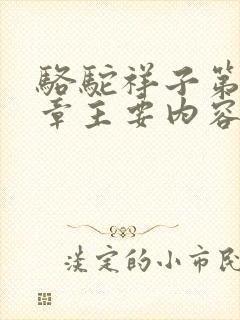 骆驼祥子第
章主要内容
淡定的小市民